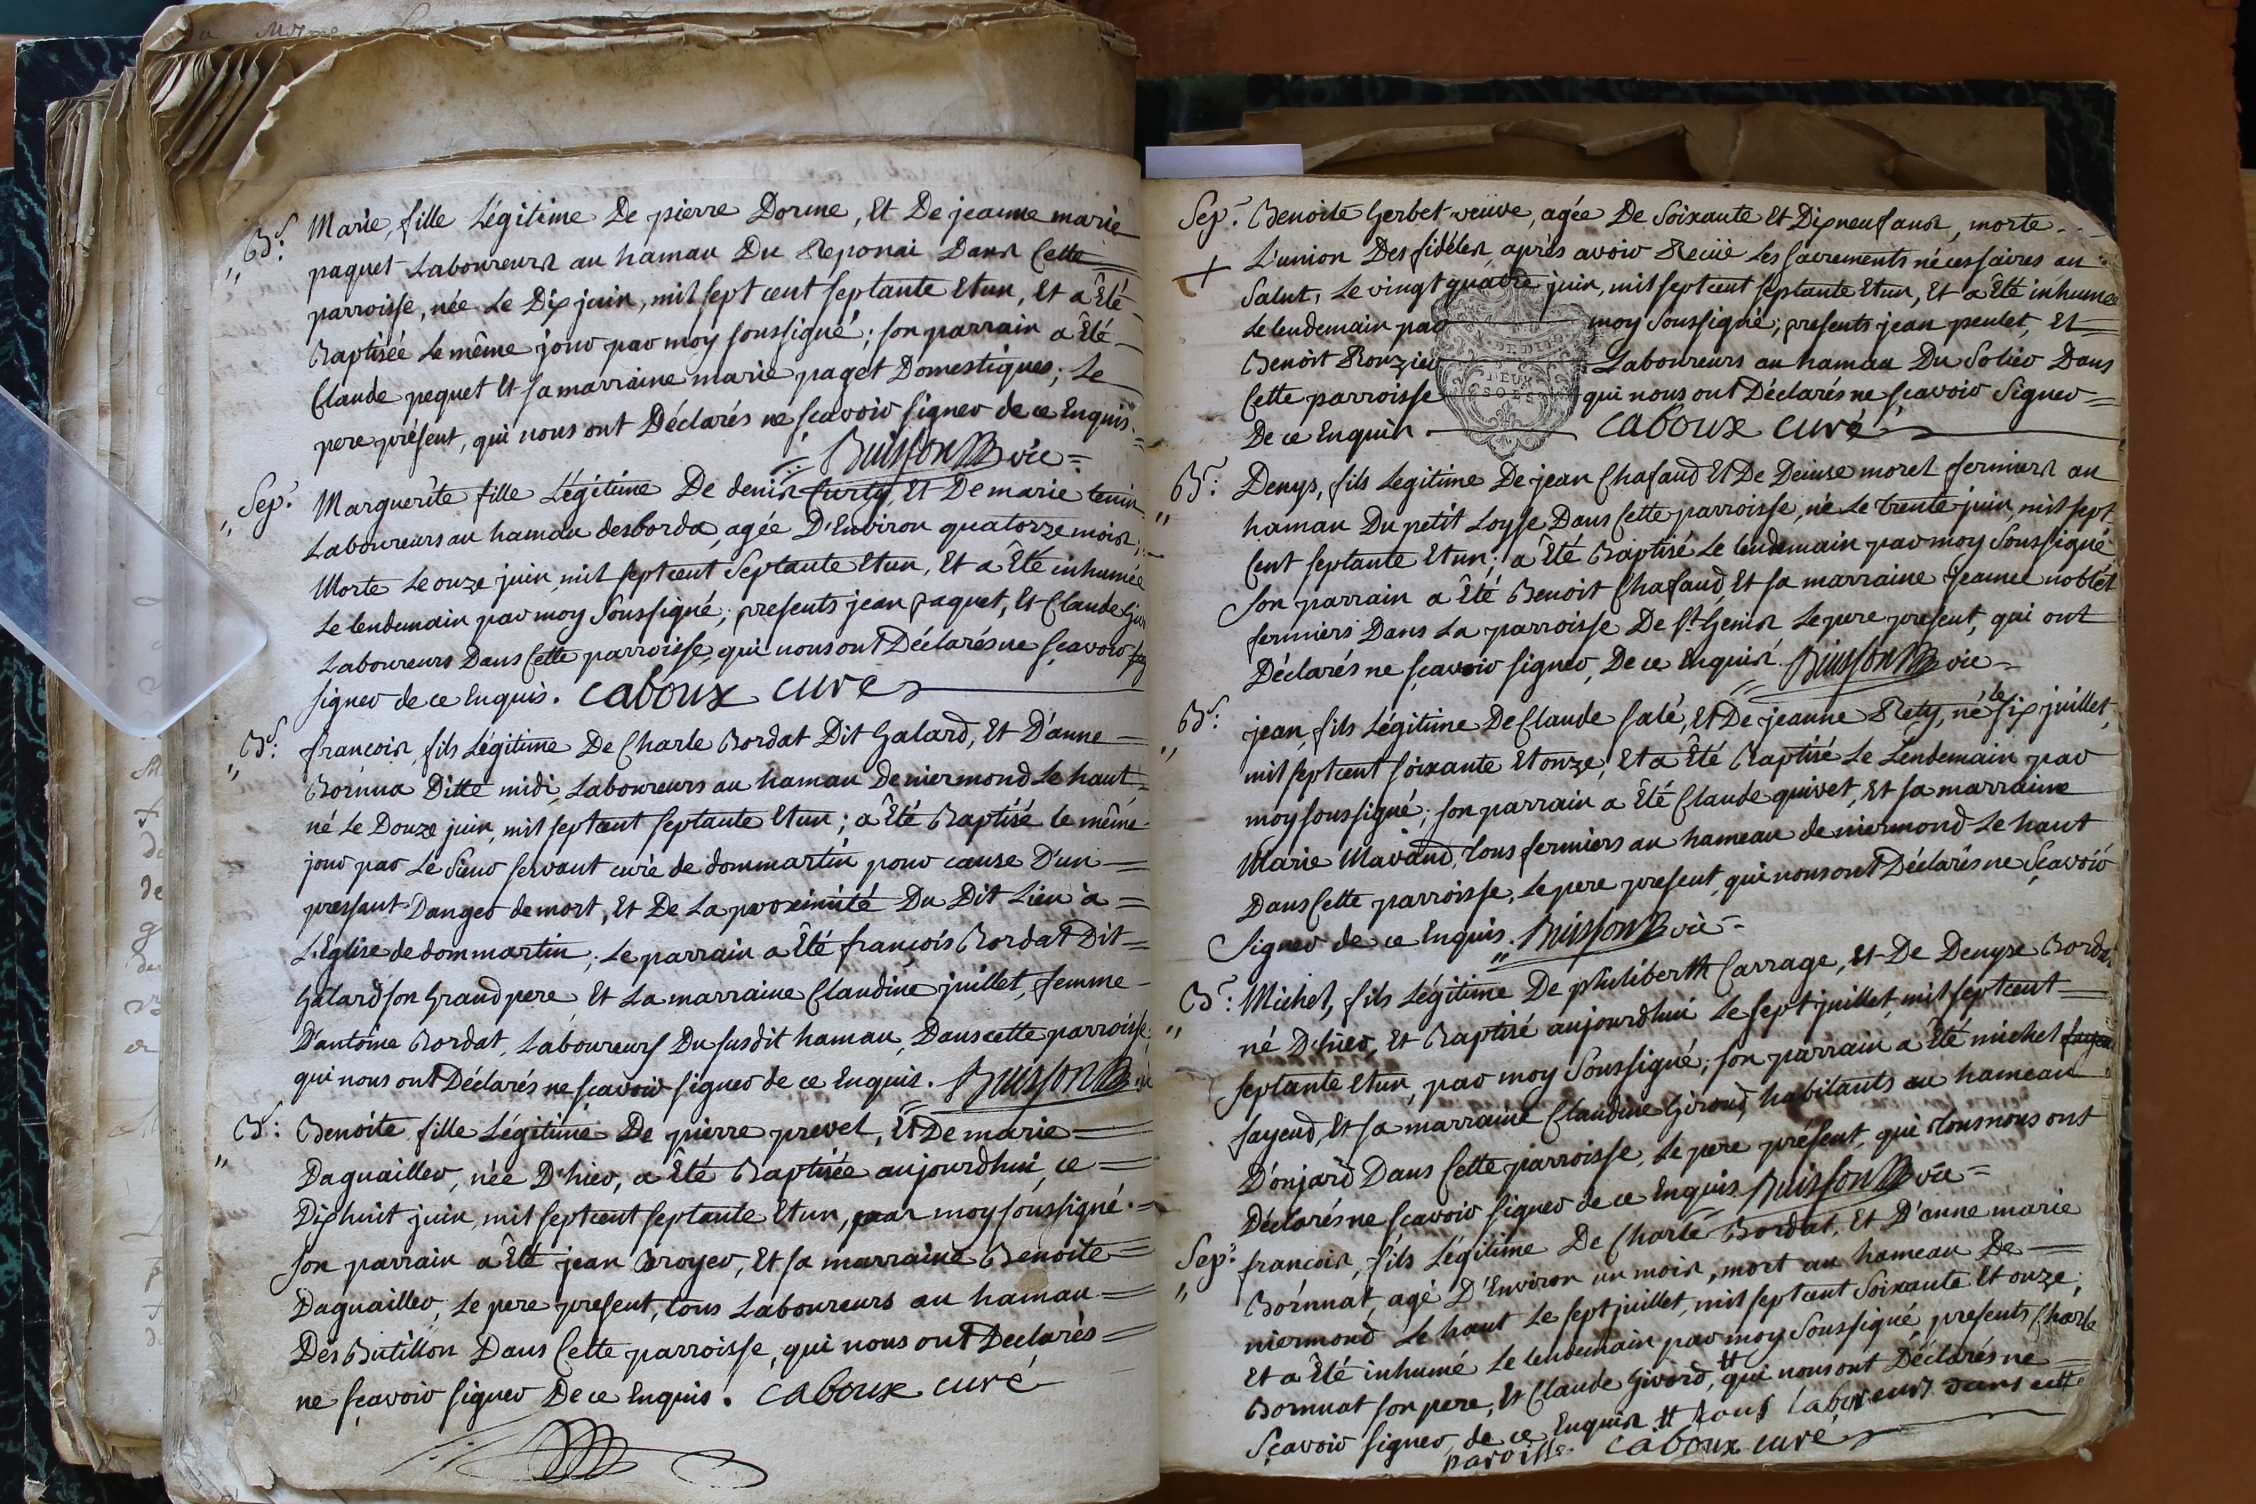 Bt: Marie, fille Légitime De pierre Dorme, Et De jeanne marie
paquet Laboureurs au hamau Du Reponai Dans Cette
parroisse, née Le Dix juin, mil sept cent septante Et un, Et a Êté
Baptisée Le même jour par moy soussigné; son parrain a Êté
Claude pequet Et sa marraine marie paget Domestiques; Le
pere présent, qui nous ont Déclarés ne sçavoir signer de ce Enquis.
Buisson vic
Sep.re Marguerite fille Légitime De denis Curty, Et De marie tenin
Laboureurs au hamau desborda, agée D'Environ quatorze mois,
Morte Le onze juin, mil sept cent Septante Et un, Et a Êté inhumée
Le lendemain par moy Soussigné; presents jean paquet, Et Claude
Laboureurs Dans Cette parroisse, qui nous ont Déclarés ne sçavoir
signer de ce Enquis. Caboux curé
Bt: françois, fils Légitime De Charle Bordat Dit Galard, Et D'anne
Bornua Ditte midi, Laboureurs au hamau de niermond Le haut,
né Le Douze juin, mil sept cent septante Et un; a Êté Baptisé le même
jour par Le Sieur servant curé de dommartin pour cause D'un
pressant Danger de mort, Et De La proximité Du Dit Lieu à
L'Eglise de dommartin; Le parrain a Êté françois Bordat Dit
Galard son Grand pere, Et La marraine Claudine juillet, femme
D'antoine Bordat, Laboureurs Du susdit hamau, Dans cette parroisse,
qui nous ont Déclarés ne sçavoir signer de ce Enquis. Buisson vic
Bt: Benoite fille Légitime De pierre prevet, Et De marie
Daguailler, née D'hier, a Êté Baptisée aujourdhui, ce
Dix huit juin, mil sept cent septante Et un, par moy soussigné.
Son parrain a Êté jean Broyer, Et sa marraine Benoite
Daguailler, Le pere present, tous Laboureurs au hamau
Des Butillon Dans Cette parroisse, qui nous ont Declarés
ne sçavoir signer De ce Enquis. Caboux curé
Sep.re Benoite Gerbet veüve, agée De Soixante Et Dix neuf ans, morte
L'union Des fidéles, après avoir Reçüe Les sacrements nécessaires au
Salut, Le vingt quatre juin, mil sept cent septante Et un, Et a Êté inhumée
Le lendemain par moy Soussigné; presents jean peulet, Et
Benoit Ronzier Laboureurs au hamau Du Solier Dans
Cette parroisse qui nous ont Déclarés ne sçavoir Signer
De ce Enquis. Caboux curé
DEUX SOLS
Bt: Denys, fils Legitime De jean Chafaud Et De Denise morel fermiers au
hamau Du petit Loysse Dans Cette parroisse, né Le trente juin, mil sept
Cent septante Et un; a Êté Baptisé Le lendemain par moy Soussigné
Son parrain a Êté Benoit Chafaud, Et sa marraine jeanne noblét
fermiers Dans La parroisse De St. Genis Le pere present, qui ont
Déclarés ne sçavoir signer, De ce Enquis. Buisson vic
Bt: jean, fils Légitime De Claude Salé, Et De jeanne Rety, né le six juillet,
mil sept cent soixante Et onze, Et a Êté Baptisé Le Lendemain par
moy soussigné; son parrain a Êté Claude quivet, Et sa marraine
Marie Mavaud, tous fermiers au hameau de niermond Le haut
Dans Cette parroisse, Le pere present, qui nous ont Déclarés ne Sçavoir
Signer de ce Enquis. Buisson vic
Bt: Michel, fils Légitime De philiberth Carrage, Et De Denyse Borda
né D'hier, Et Baptisé aujourdhui Le sept juillet, mil sept cent
septante Et un, par moy Soussigné; son parrain a Êté michel
fayend, Et sa marraine Claudine Giroud, habitants au hameau
D'onjard Dans Cette parroisse, Le pere présent, qui tous nous ont
Déclarés ne sçavoir signer de ce Enquis Buisson vic
Sep.re françois, fils Légitime De Charle Bordat, Et D'anne marie
Bornnat, agé D'Environ un mois, mort au hameau De
niermond Le haut Le sept juillet, mil sept cent Soixante Et onze,
Et a Êté inhumé Le lendemain par moy Soussigné, presents Charle
Bornnat son pere, Et Claude Givord, # qui nous ont Déclarés ne
Sçavoir signer, de ce Enquis # tous Laboreurs dans cette
paroisse. Caboux curé